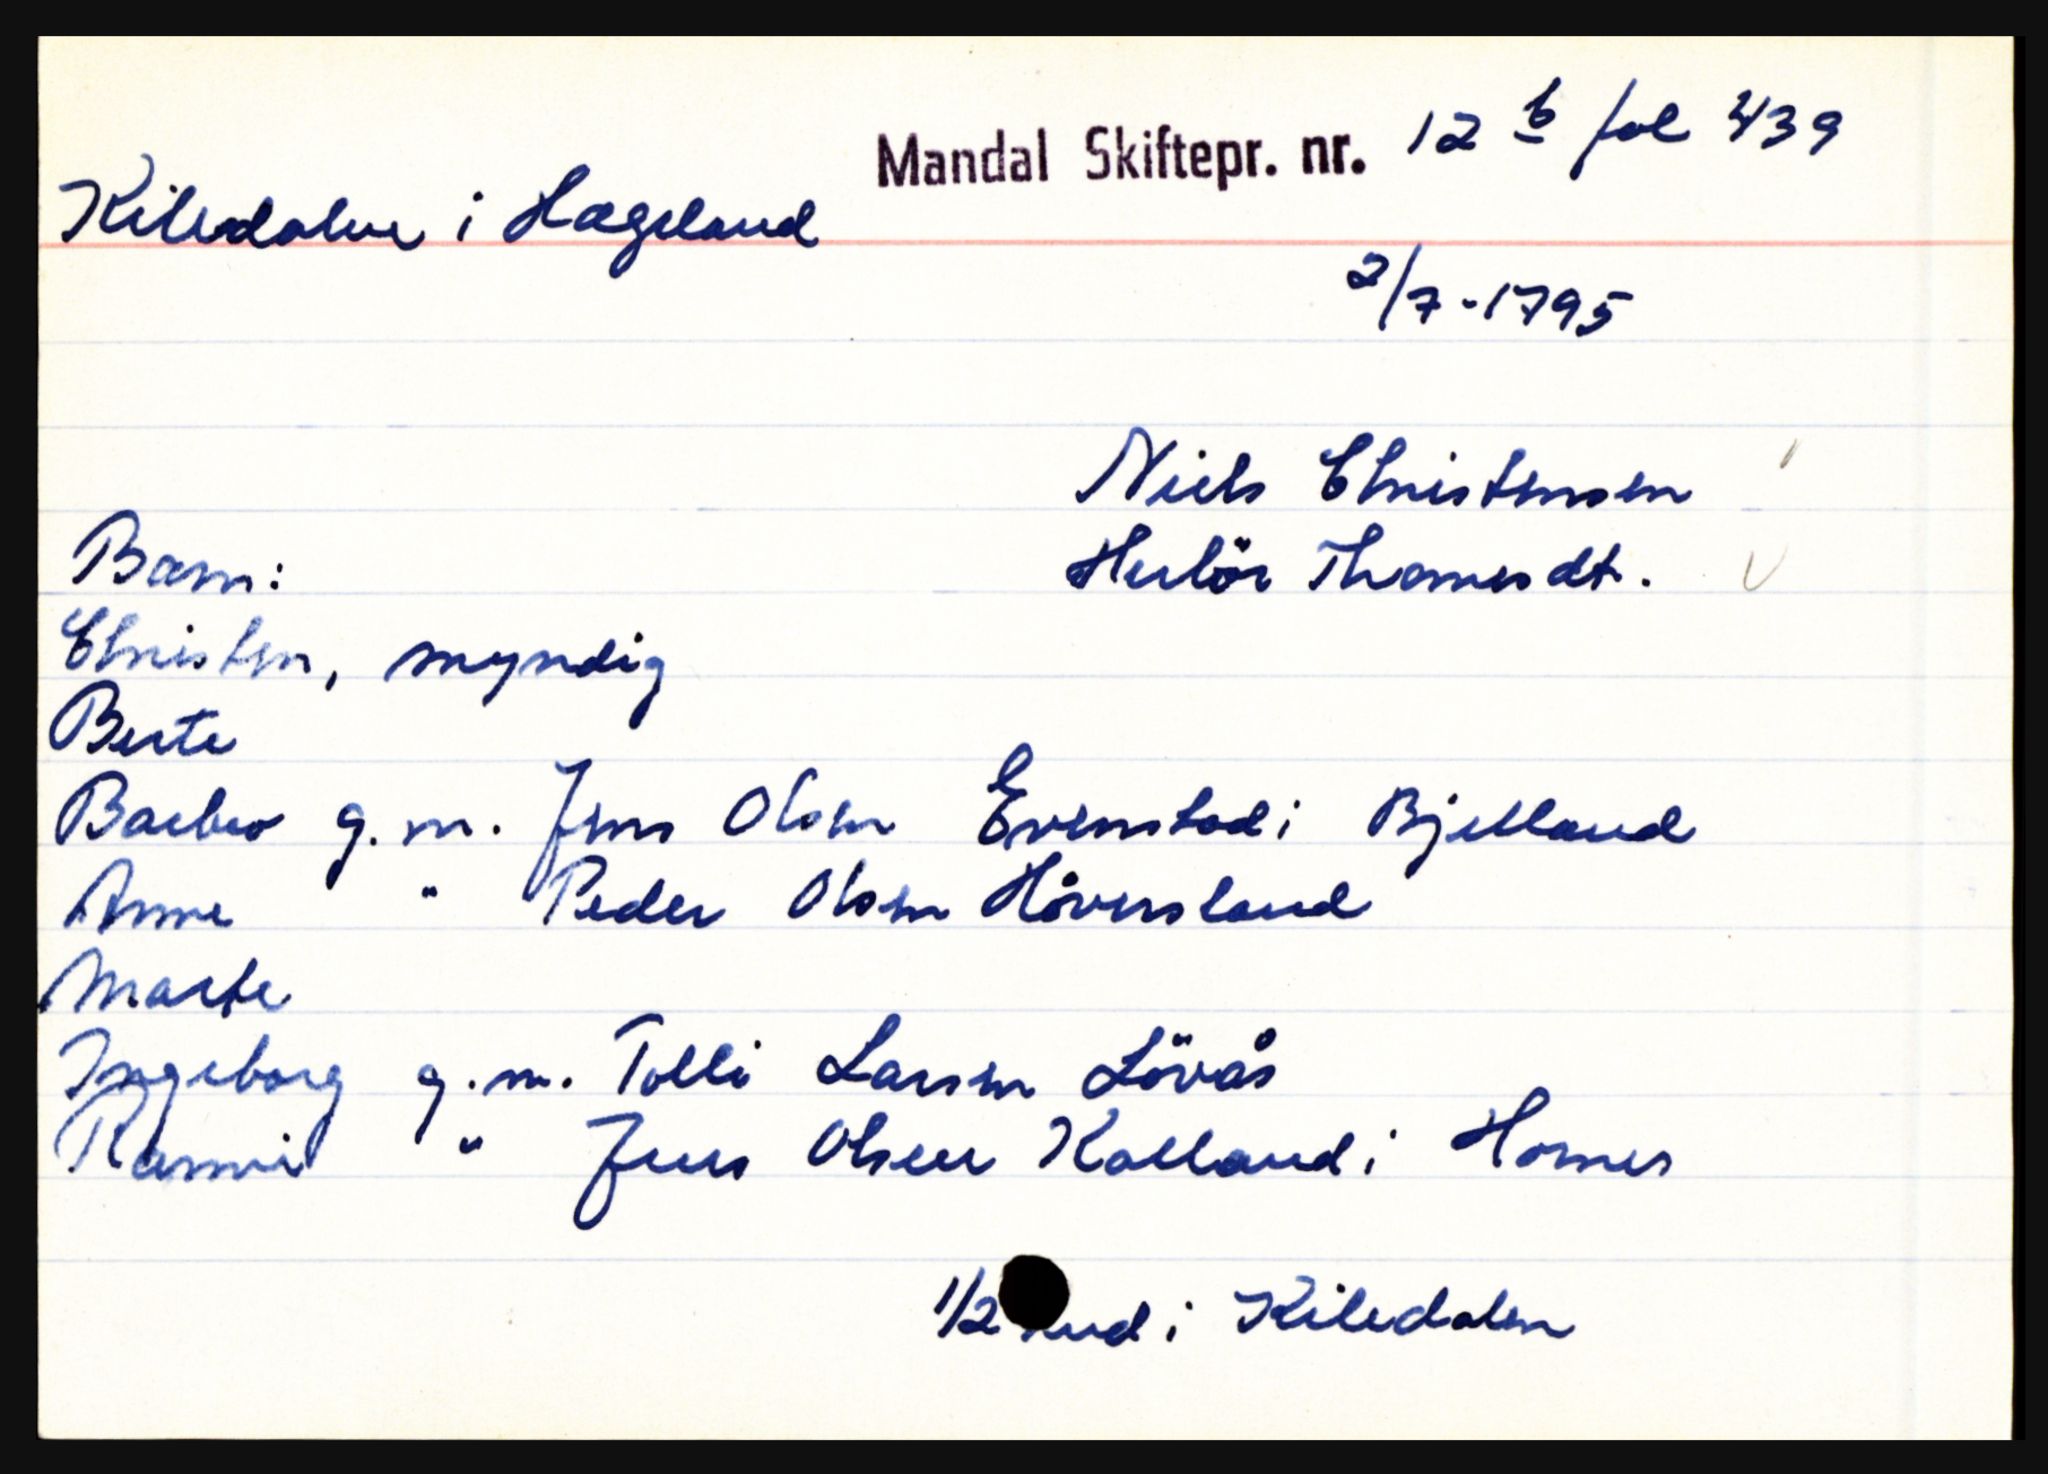 Mandal Skiftepr. nr. 12 b fol 439
Kiledalen i Hægeland
2/7-1795
Niels Christensen
Herlör Thomesdt.
Barn:
Christen, myndig
Berte
Barbro g.m. Jens Olsen Evenstad i Bjelland
Anne " Peder Olsen Håversland
Marte
Ingeborg g.m. Tolli Larsen Lövås
Ranvi " Jens Olsen Kalland i Homes
1/2 hud i Kiledalen